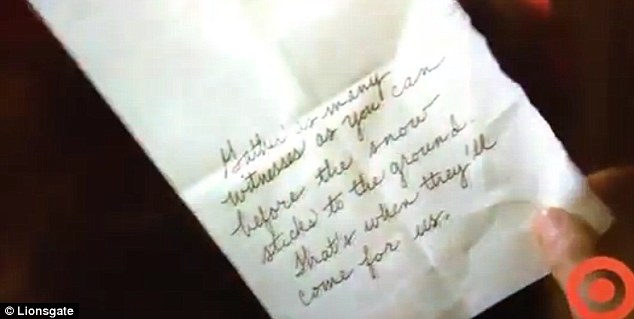 Gather as many
witnesses as you can
before the snow
sticks to the ground.
That's when they'll
come for us.
© Lionsgate